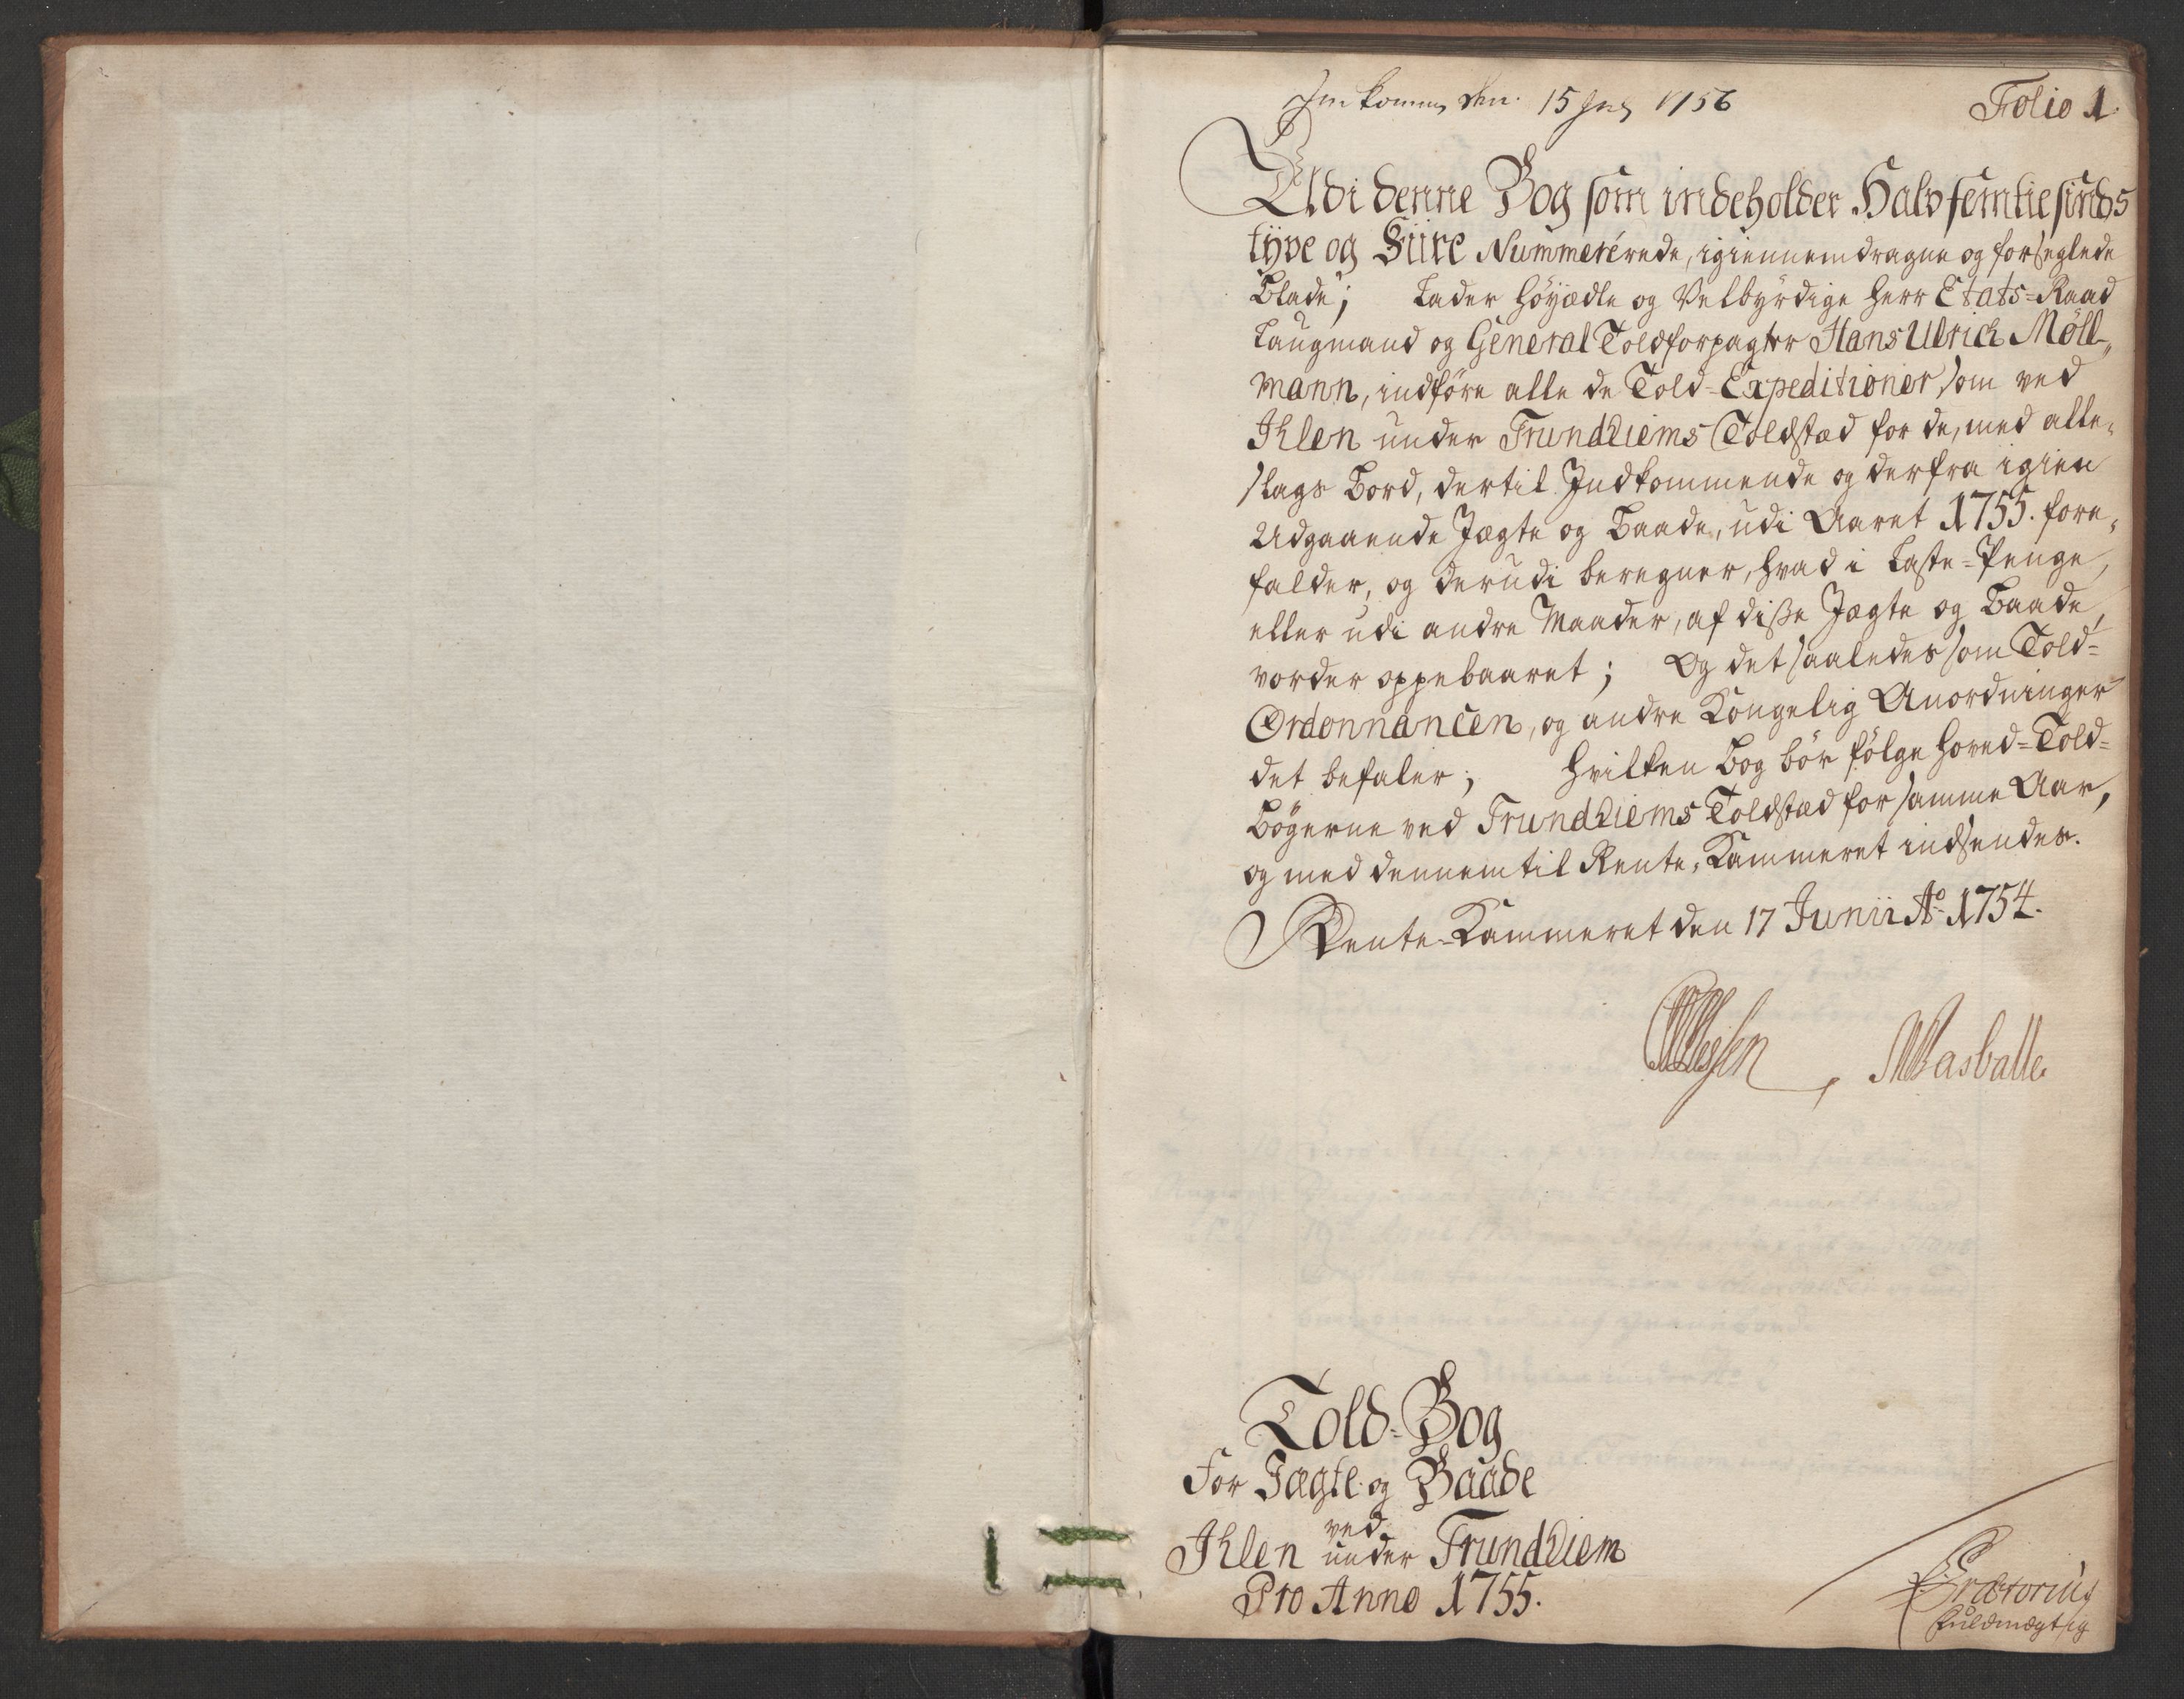 Indkommen den 15 July 1756
Folio 1.
Udi denne Bog som indeholder Halvfemtiesinds
tÿve og Fiire Nummerérede, igiennemdragne og forseglede
Blade; Lader Höÿædle og Velbÿrdige Herr Etats-Raad
Laugmand og General Toldforpagter Hans Ulrich Möll„
mann, indföre alle de Told-Expeditioner som ved
Ihlen under Trundhiems Toldstæd for de, med alle„
slags Bord, dertil Indkommende og derfra igien
Udgaaende Jægte og Baade, udi Aaret 1755. fore„
falder, og derudi beregner, hvad i Laste-Penge,
eller udi andre Maader, af diße Jægte og Baade,
vorder oppebaaret; Og det saaledes som Told-
Ordonnancen, og andre Kongelig Anordninger
det befaler; Hvilken Bog bör fölge Hoved-Told-
Bögerne ved Trundhiems Toldstæd for samme Aar,
og med dennem til Rente-Kammeret indsendes.
Rente-Kammeret den 17 Junii Ao 1754.
Told-Bog
For Jægte og Baade
ved
Ihlen under Trundhiem
Pro Anno 1755.
Prætorius
Fuldmægtig